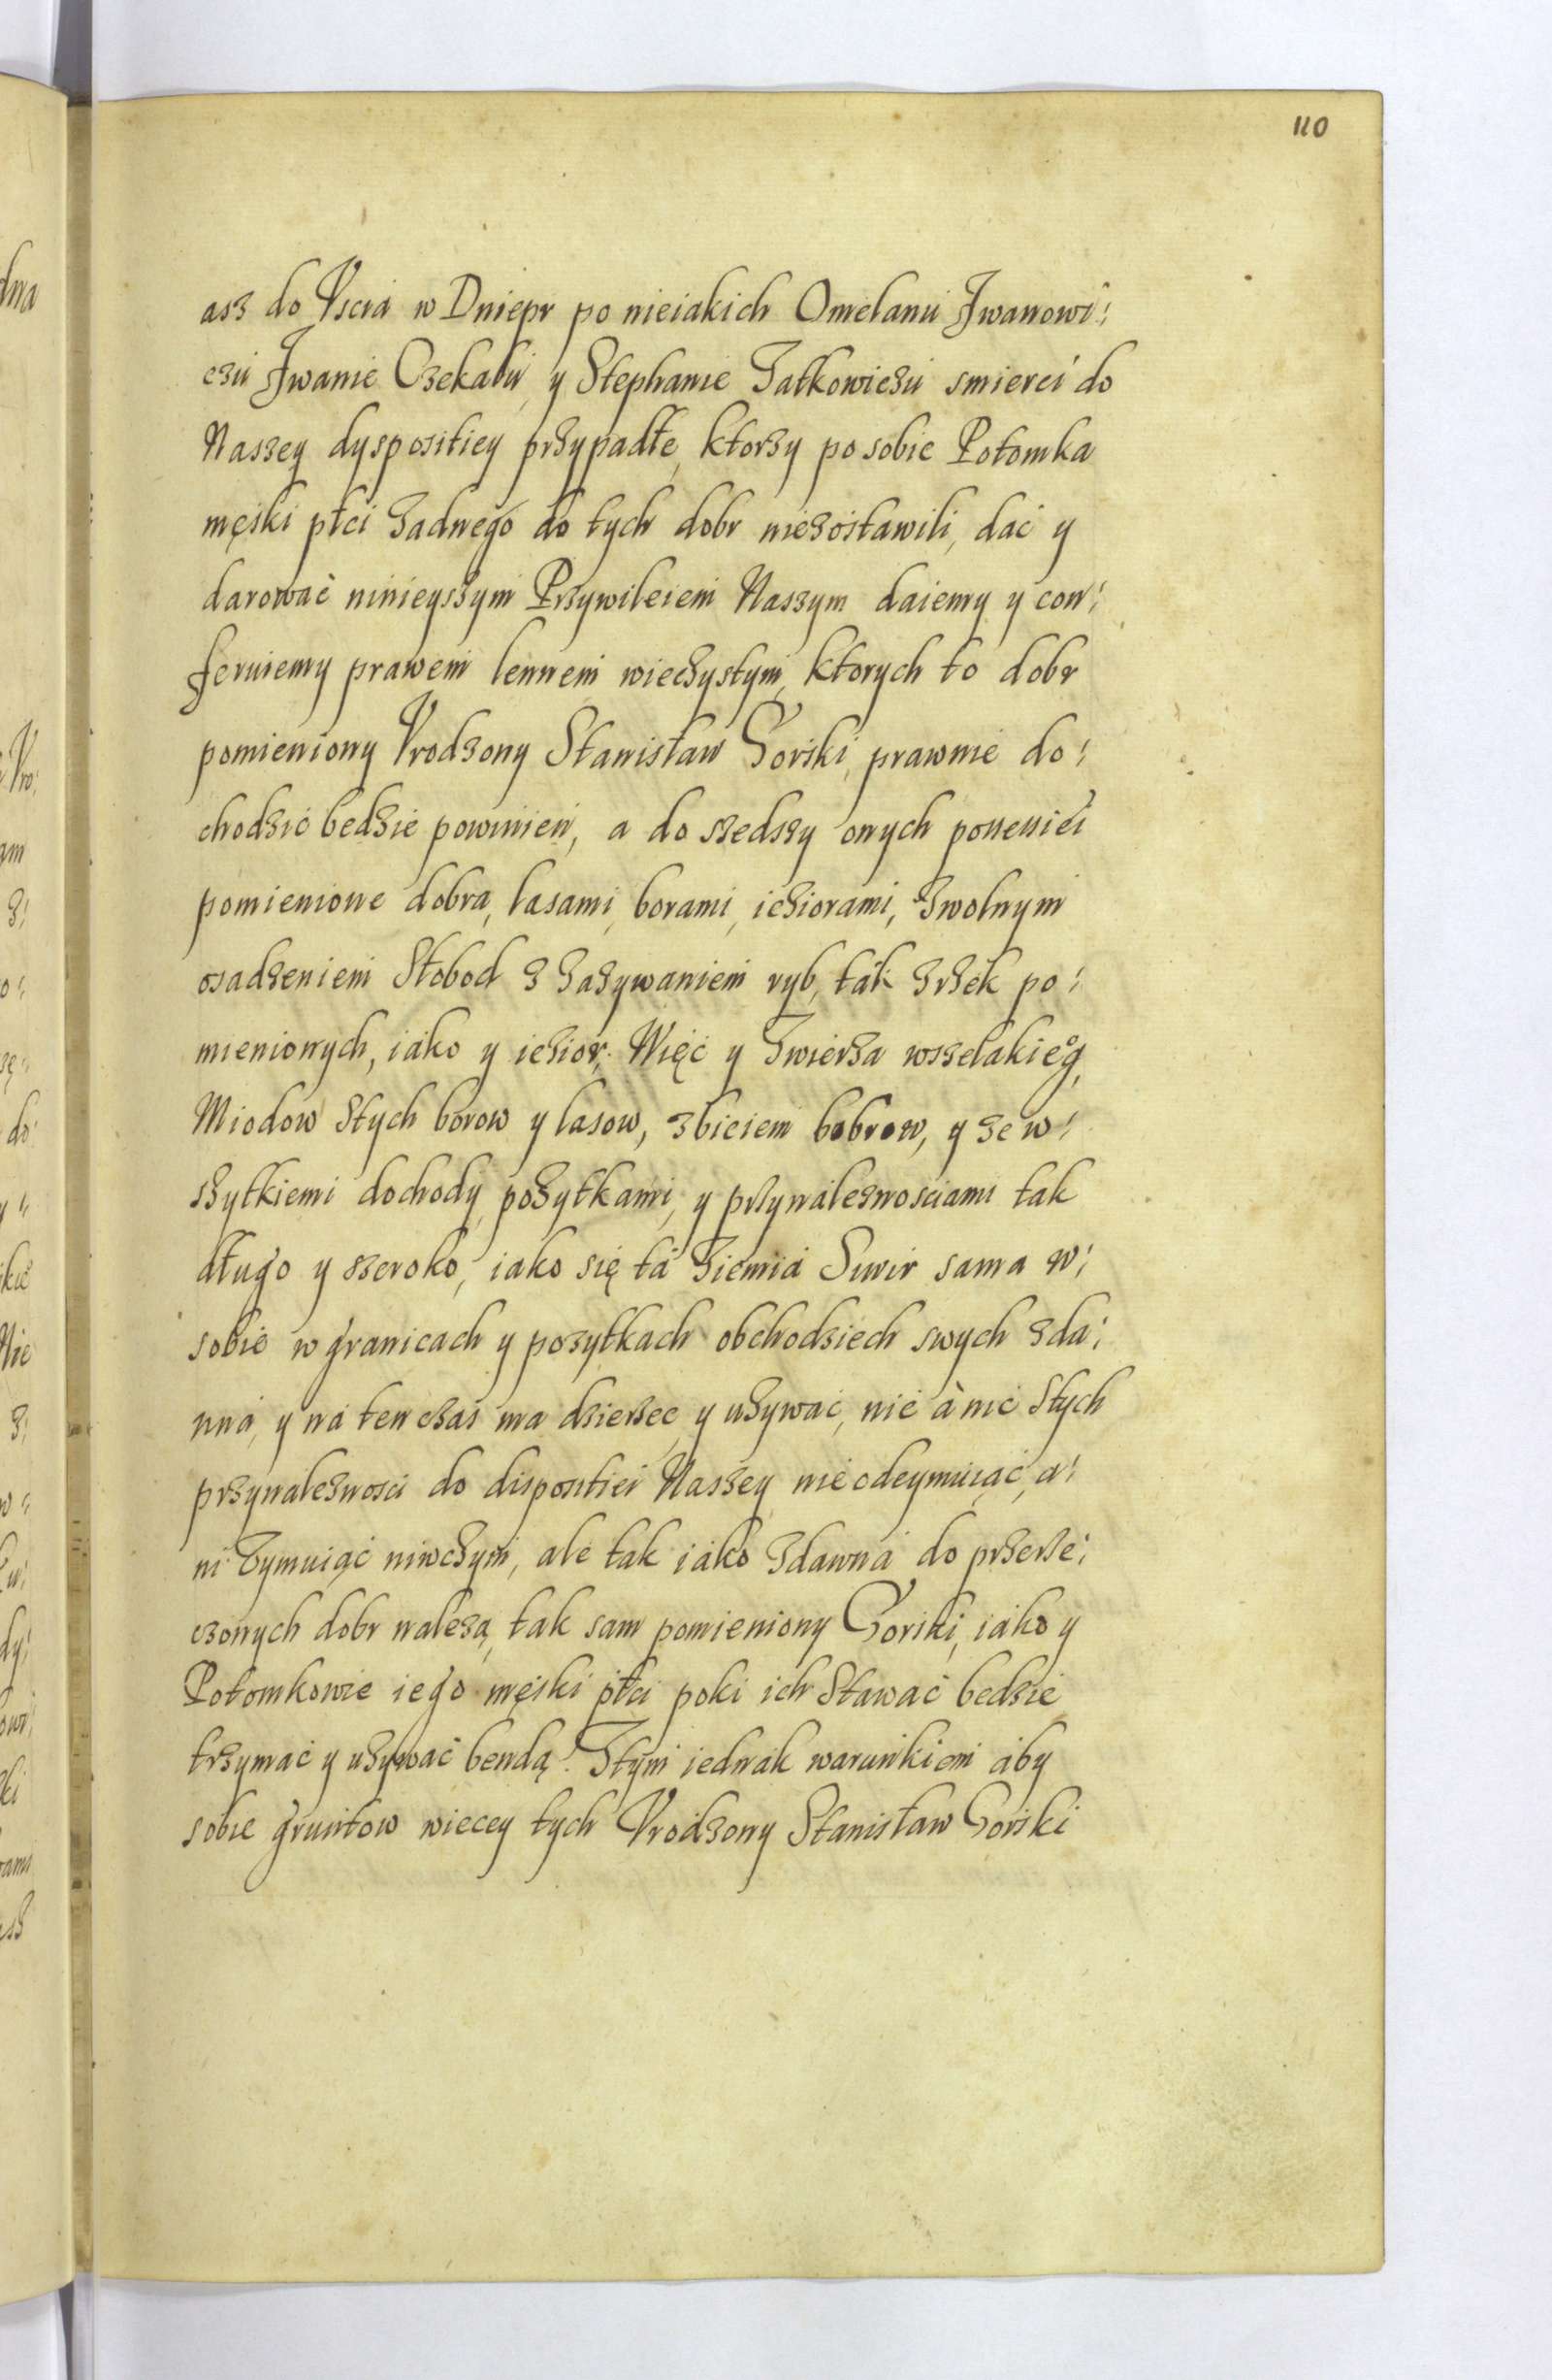 110
asz do Vscia w Dniepr po nieiakich Omelanu Jwanowi:
czu Jwanie Czekału, y Stephanie Jatkowiczu smierci do
Naszey dyspositiey przypadłe, ktorzy po sobie Potomka
męski płci zadnego do tych dobr niezostawili, dać y
darować ninieyszym Przywileiem Naszym daiemy y con:
feruiemy prawem lennem wieczystym, ktorych to dobr
pomieniony Vrodzony Stanisław Gorski, prawnie do:
chodzić bedzie powinien, a do szedszy onych
pomienione dobra, lasami, borami, ieziorami, zwolnym
osadzeniem Słobod z zazywaniem ryb, tak zrzek po:
mienionych, iako y iezior. Więc y Zwierza wszelakieg,
Miodow Stych borow y lasow, zbiciem bobrow, y ze w:
szytkiemi dochody, pozytkami, y przynaleznosciami tak
długo y szeroko, iako się ta Ziemia Suvir sama w:
sobie w granicach y pozytkach obchodziech swych zda:
wna, y na ten czas ma dzierzec, y uzywać, nic a nic Stych
przynaleznosci do dispositiei Naszey nie odeymuiąc, a:
ni Vymuiąc niwczym, ale tak iako zdawna do przerze:
czonych dobr nalezą, tak sam pomieniony Gorski, iako y
Potomkowie iego męski płci poki ich Stawać bedzie
trzymać y uzywać bendą. Ztym iednak warunkiem aby
sobie gruntow wiecey tych Vrodzony Stanisław Gorski